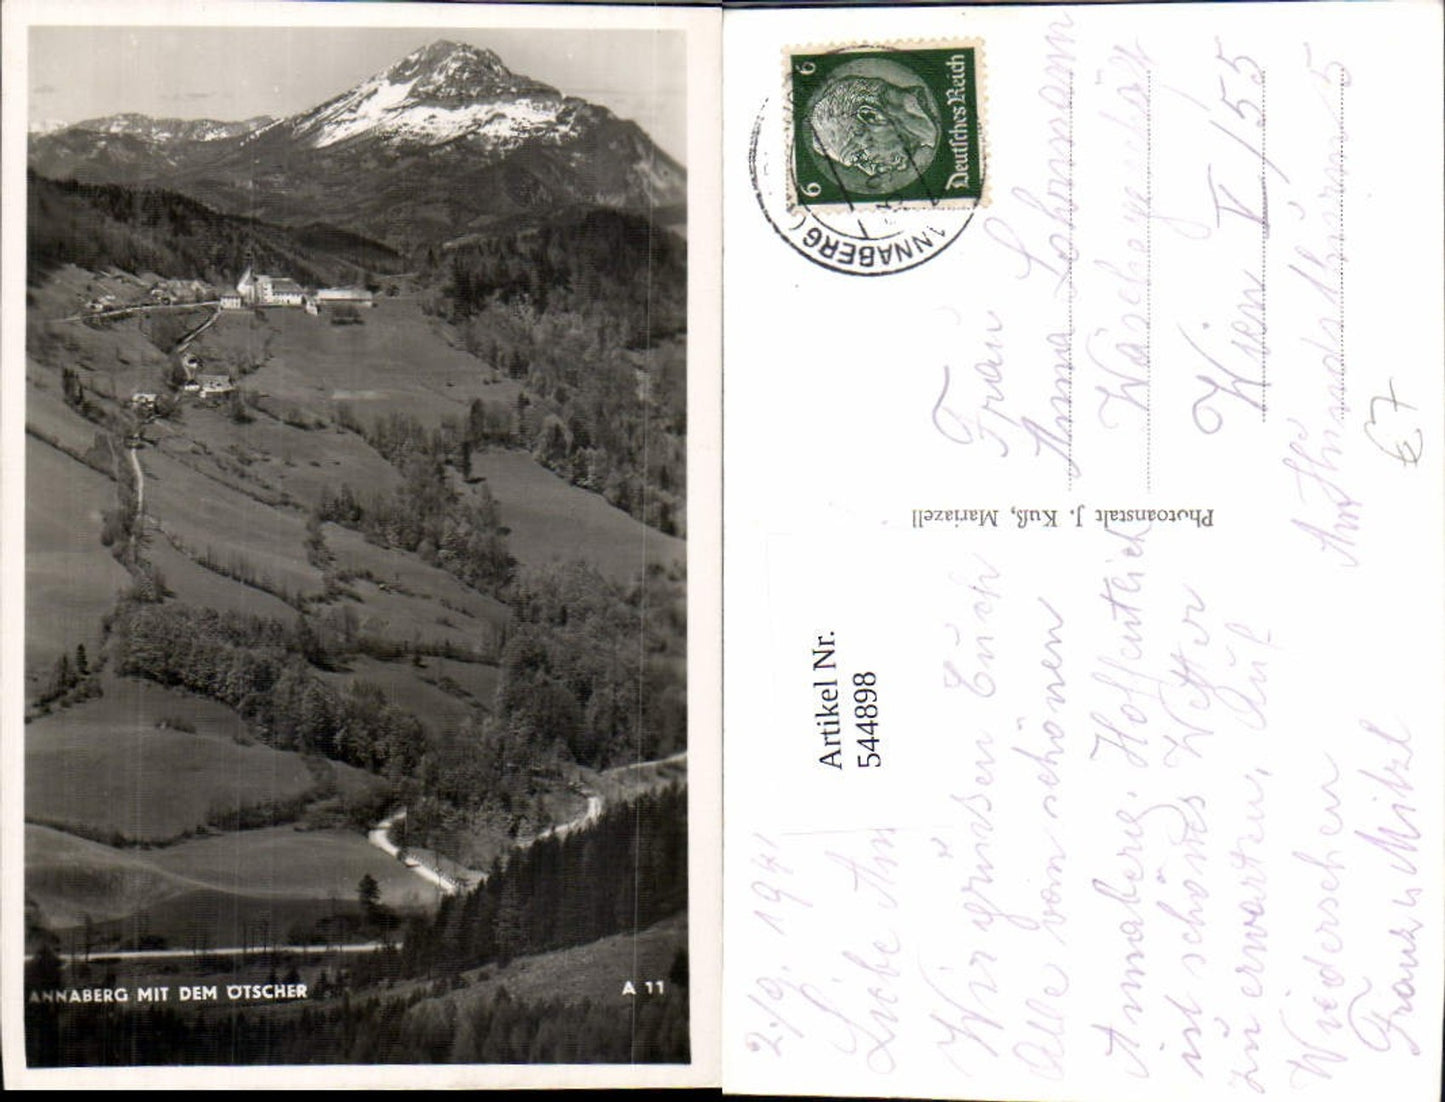 ANNABERG MIT DEM ÖTSCHER
A 11
Deutsches Reich
6
6
ANNABERG
Photoanstalt J. Kuß, Mariazell
Artikel Nr.
544898
2./9. 1941
Liebe
Wir grüssen Euch
Alle vom schönen
Annaberg. Hoffentlich
ist schönes Wetter
zu erwarten. Auf
Wiedersehen
Franz u. Mitzl
Frau
Anna Lahnmann
Wien V/55
Am Hundsthurm 5
€7